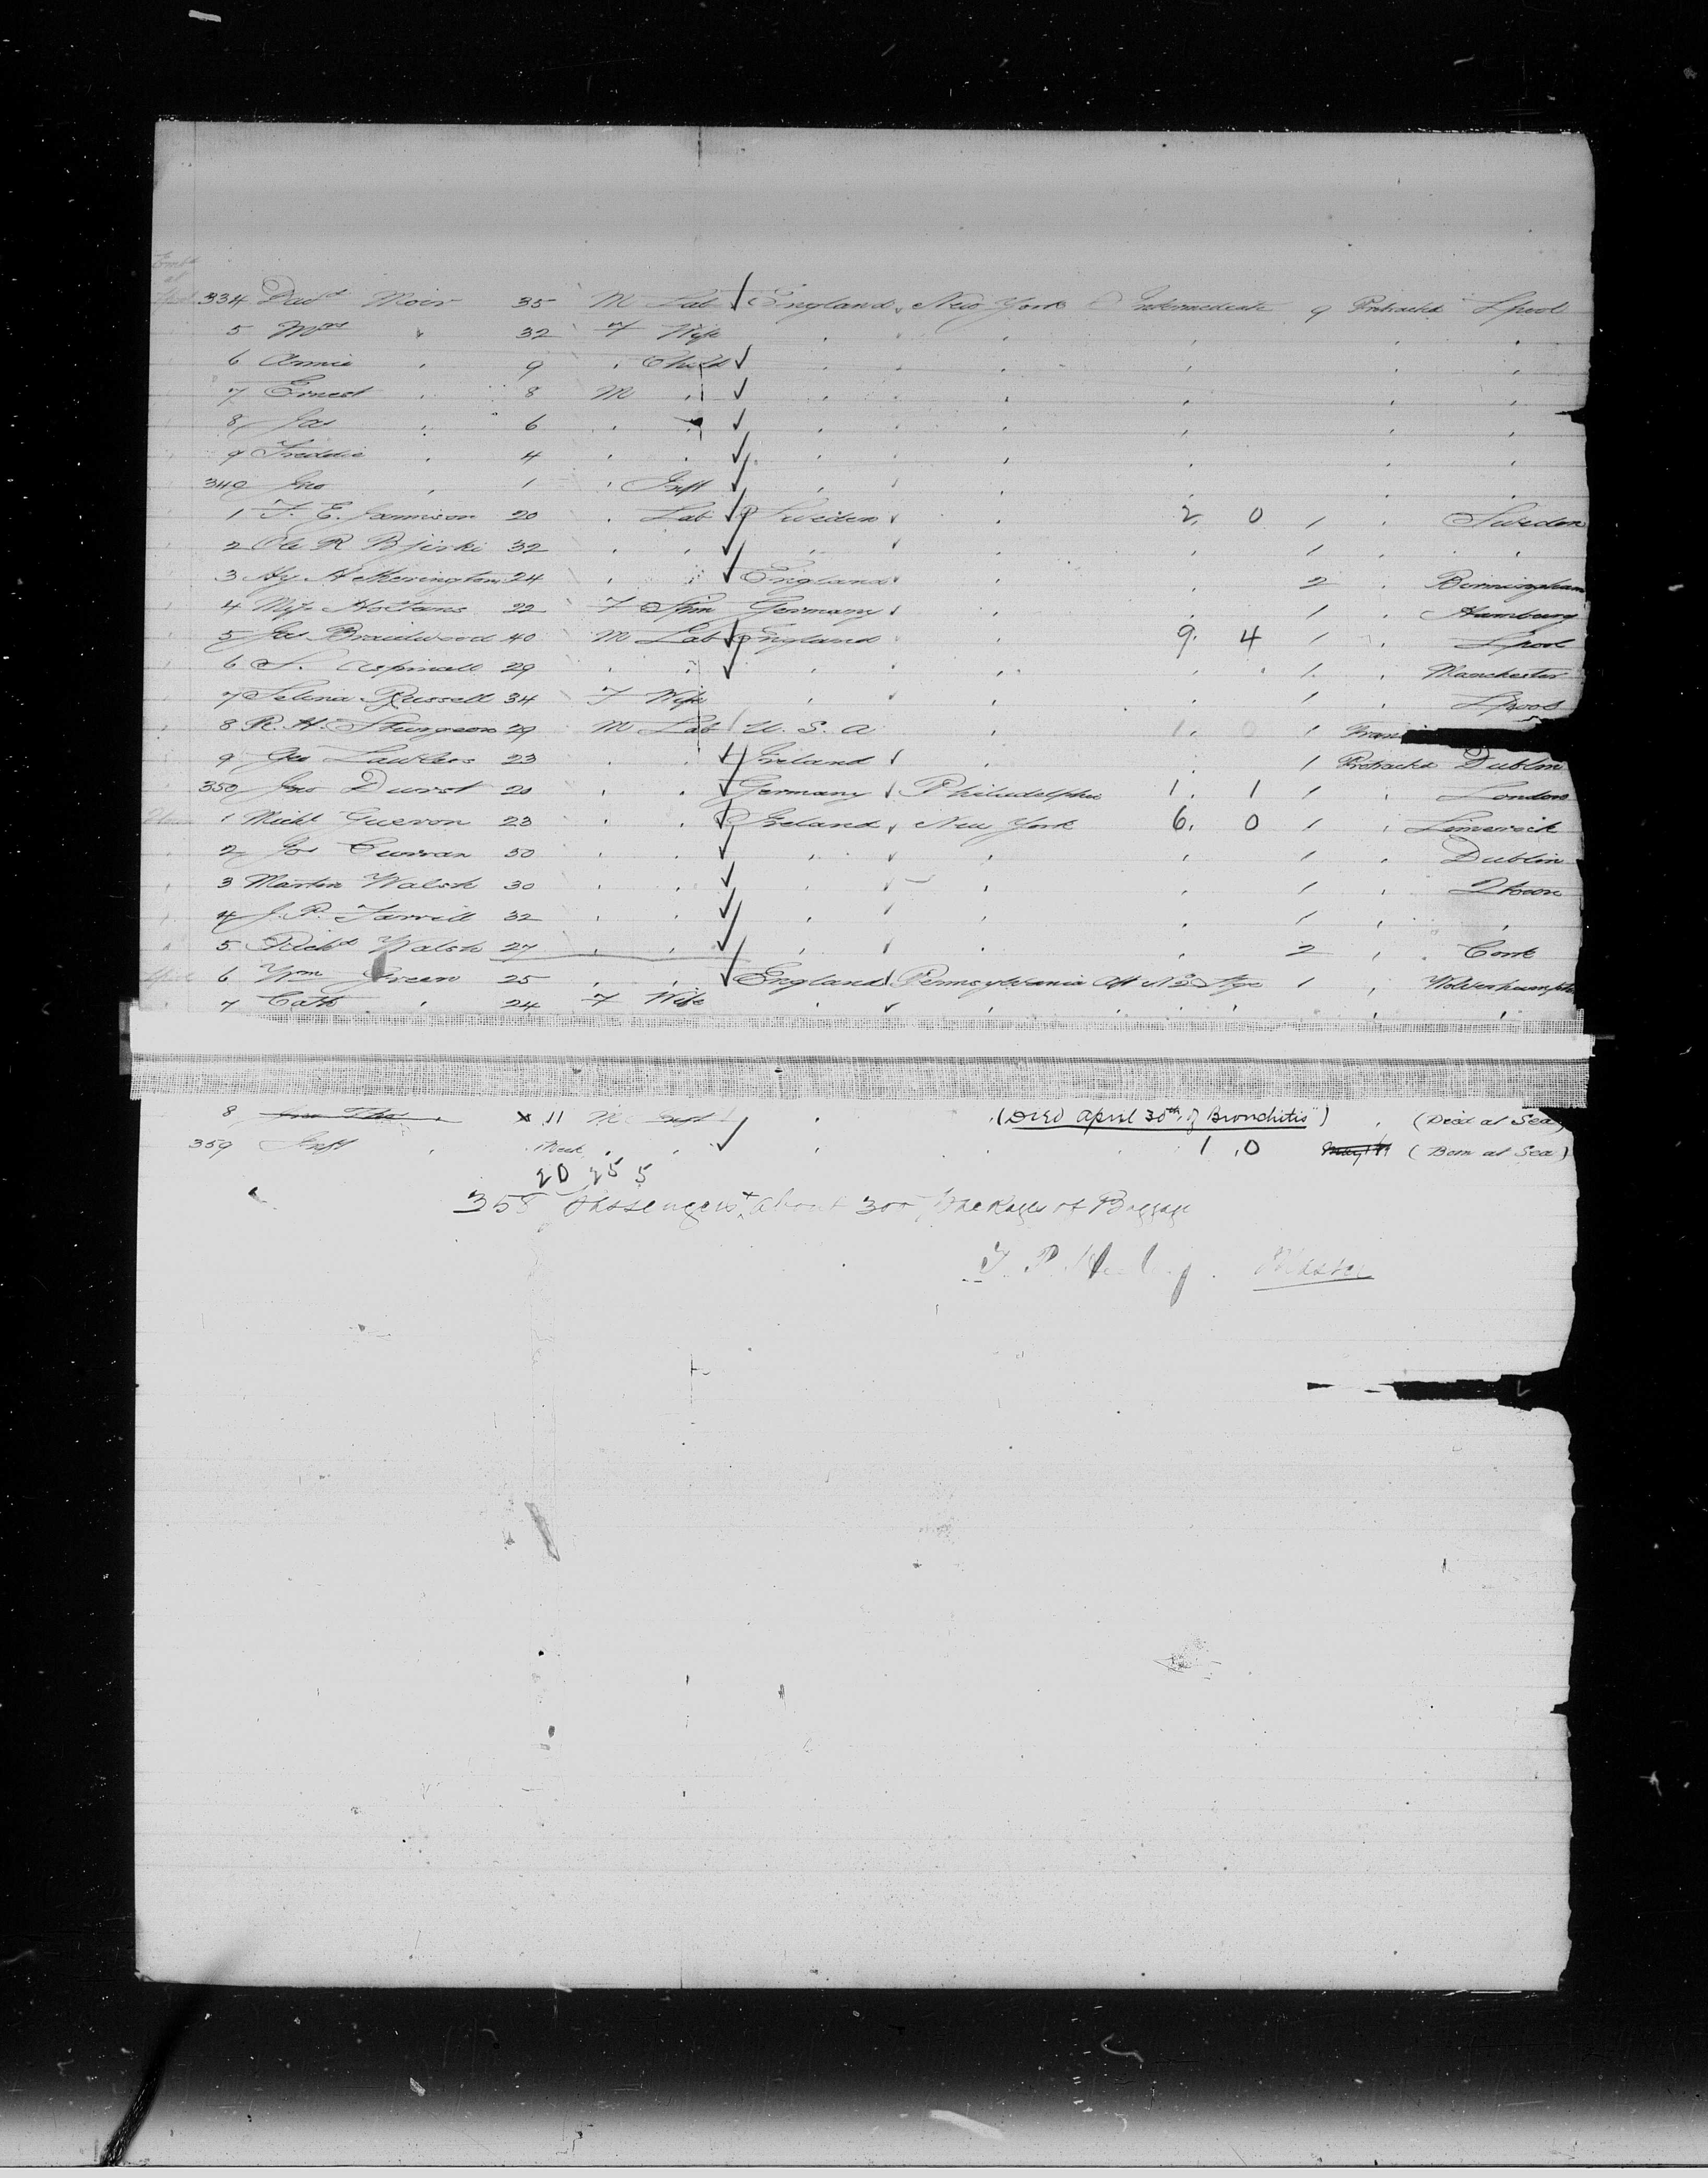 Embd at
334 Davd Moir 35 M Lab England New York Intermediate 9 Protracted Lpool
5 Mrs " 32 F Wife " " " " "
6 Annie " 9 " Child " " " " "
7 Ernest " 8 M " " " " " "
8 Jas " 6 " " " " " " "
9 Freddie " 4 " " " " " " "
340 Jno " 1 " Inft " " " " "
1 J. E. Jannison 20 " Lab Sweden " 2. 0 1 " Sweden
2 Ole R 32 " " " " " 1 " "
3 Hy Hetherington 24 " " England " " 2 " Birmingham
4 22 F Spin Germany " " 1 " Hamburg
5 Jas Braidwood 40 M Lab England " 9. 4 1 " Lpool
6 S. Aspinall 29 " " " " " " 1 " Manchester
7 Selina Russell 34 F Wife " " " 1 " Lpool
8 R. H. Sturgeon 29 M Lab U. S. A " 1. 0 1 Tran
9 Geo Lawless 23 " " Ireland " " 1 Protracted Dublin
350 Jno Durst 20 " " Germany Philadelphia 1. 1 1 " London
1 Michl Gueron 23 " " Ireland New York 6. 0 1 " Limerick
2 Jos Curran 50 " " " " " 1 " Dublin
3 Martin Walsh 30 " " " " " 1 " Qtown
4 J. P. Farrell 32 " " " " " 1 " "
5 Richd Walsh 27 " " " " 2 " Cork
6 Wm Green 25 " " England Pennsylvania Aft No 2 Stge 1 " Wolverhampton
7 Cath " 24 F Wife " " " " " "
8 11 M Inft " (Died April 30th of Bronchitis) " (Died at Sea)
359 Inft " Week " " " " 1 0 (Born at Sea)
20 25 5
358 Passengers + about 300 Packages of Baggage
Master